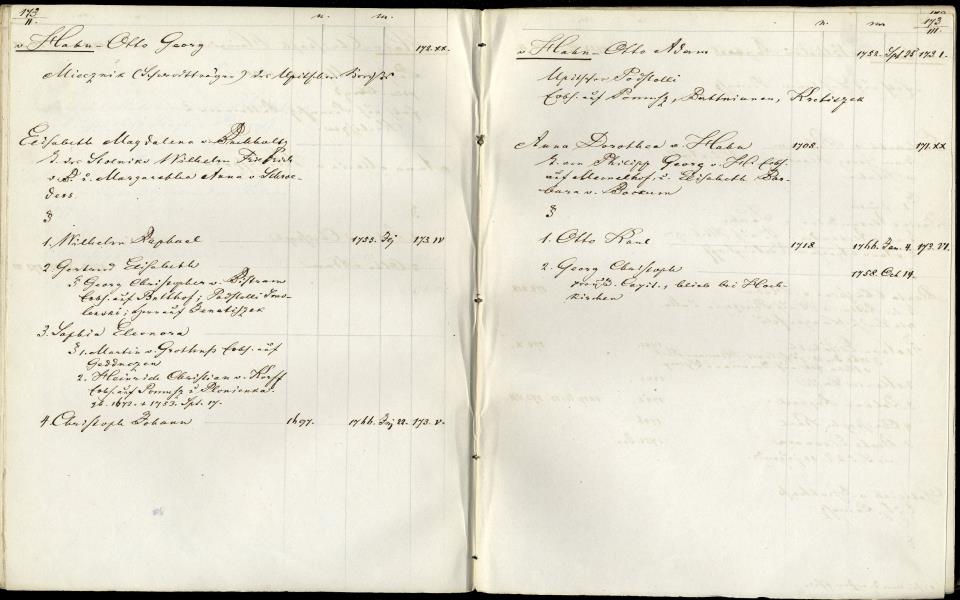 173
II.
n. m.
v. Hahn - Otto Georg 172.XX.
Miecznik (Schwerdtträger) des Upitschen Kreises
Elisabeth Magdalena v. Buchholtz
T. des Stolniks Wilhelm Friedrich
v. B. u. Margaretha Anna v. Schroe-
ders
1. Wilhelm Raphael 1755. 173.IV
2. Gertrud Elisabeth
Georg Christopher v. Bistram
Erbh. auf
auf
3. Sophia Eleonora
1. Martin v. Grotthuss Erbh. auf
2. Heinrich Christian v. Korff
Erbh. auf Pommusz u. Plonienka.
gb. 1672. + 1753. Spt. 17.
4. Christoph Johann 1697. 1766. 22. 173.V.
173
III.
n. m.
v. Hahn - Otto Adam 1753. Spt 25. 173 I.
Upitscher Podstolli
Erbh. auf Pommusz, Krebiszek
Anna Dorothea v. Hahn 1708. 171.XX
T. von Philipp Georg v. H. Erbh.
auf Memelhof, u. Elisabeth Bar-
bara v. Bockum
1. Otto Karl 1718. 1766. Jan. 4. 173.VI.
2. Georg Christoph 1758. Oct 14.
Capit., blieb bei Hoch-
kirchen